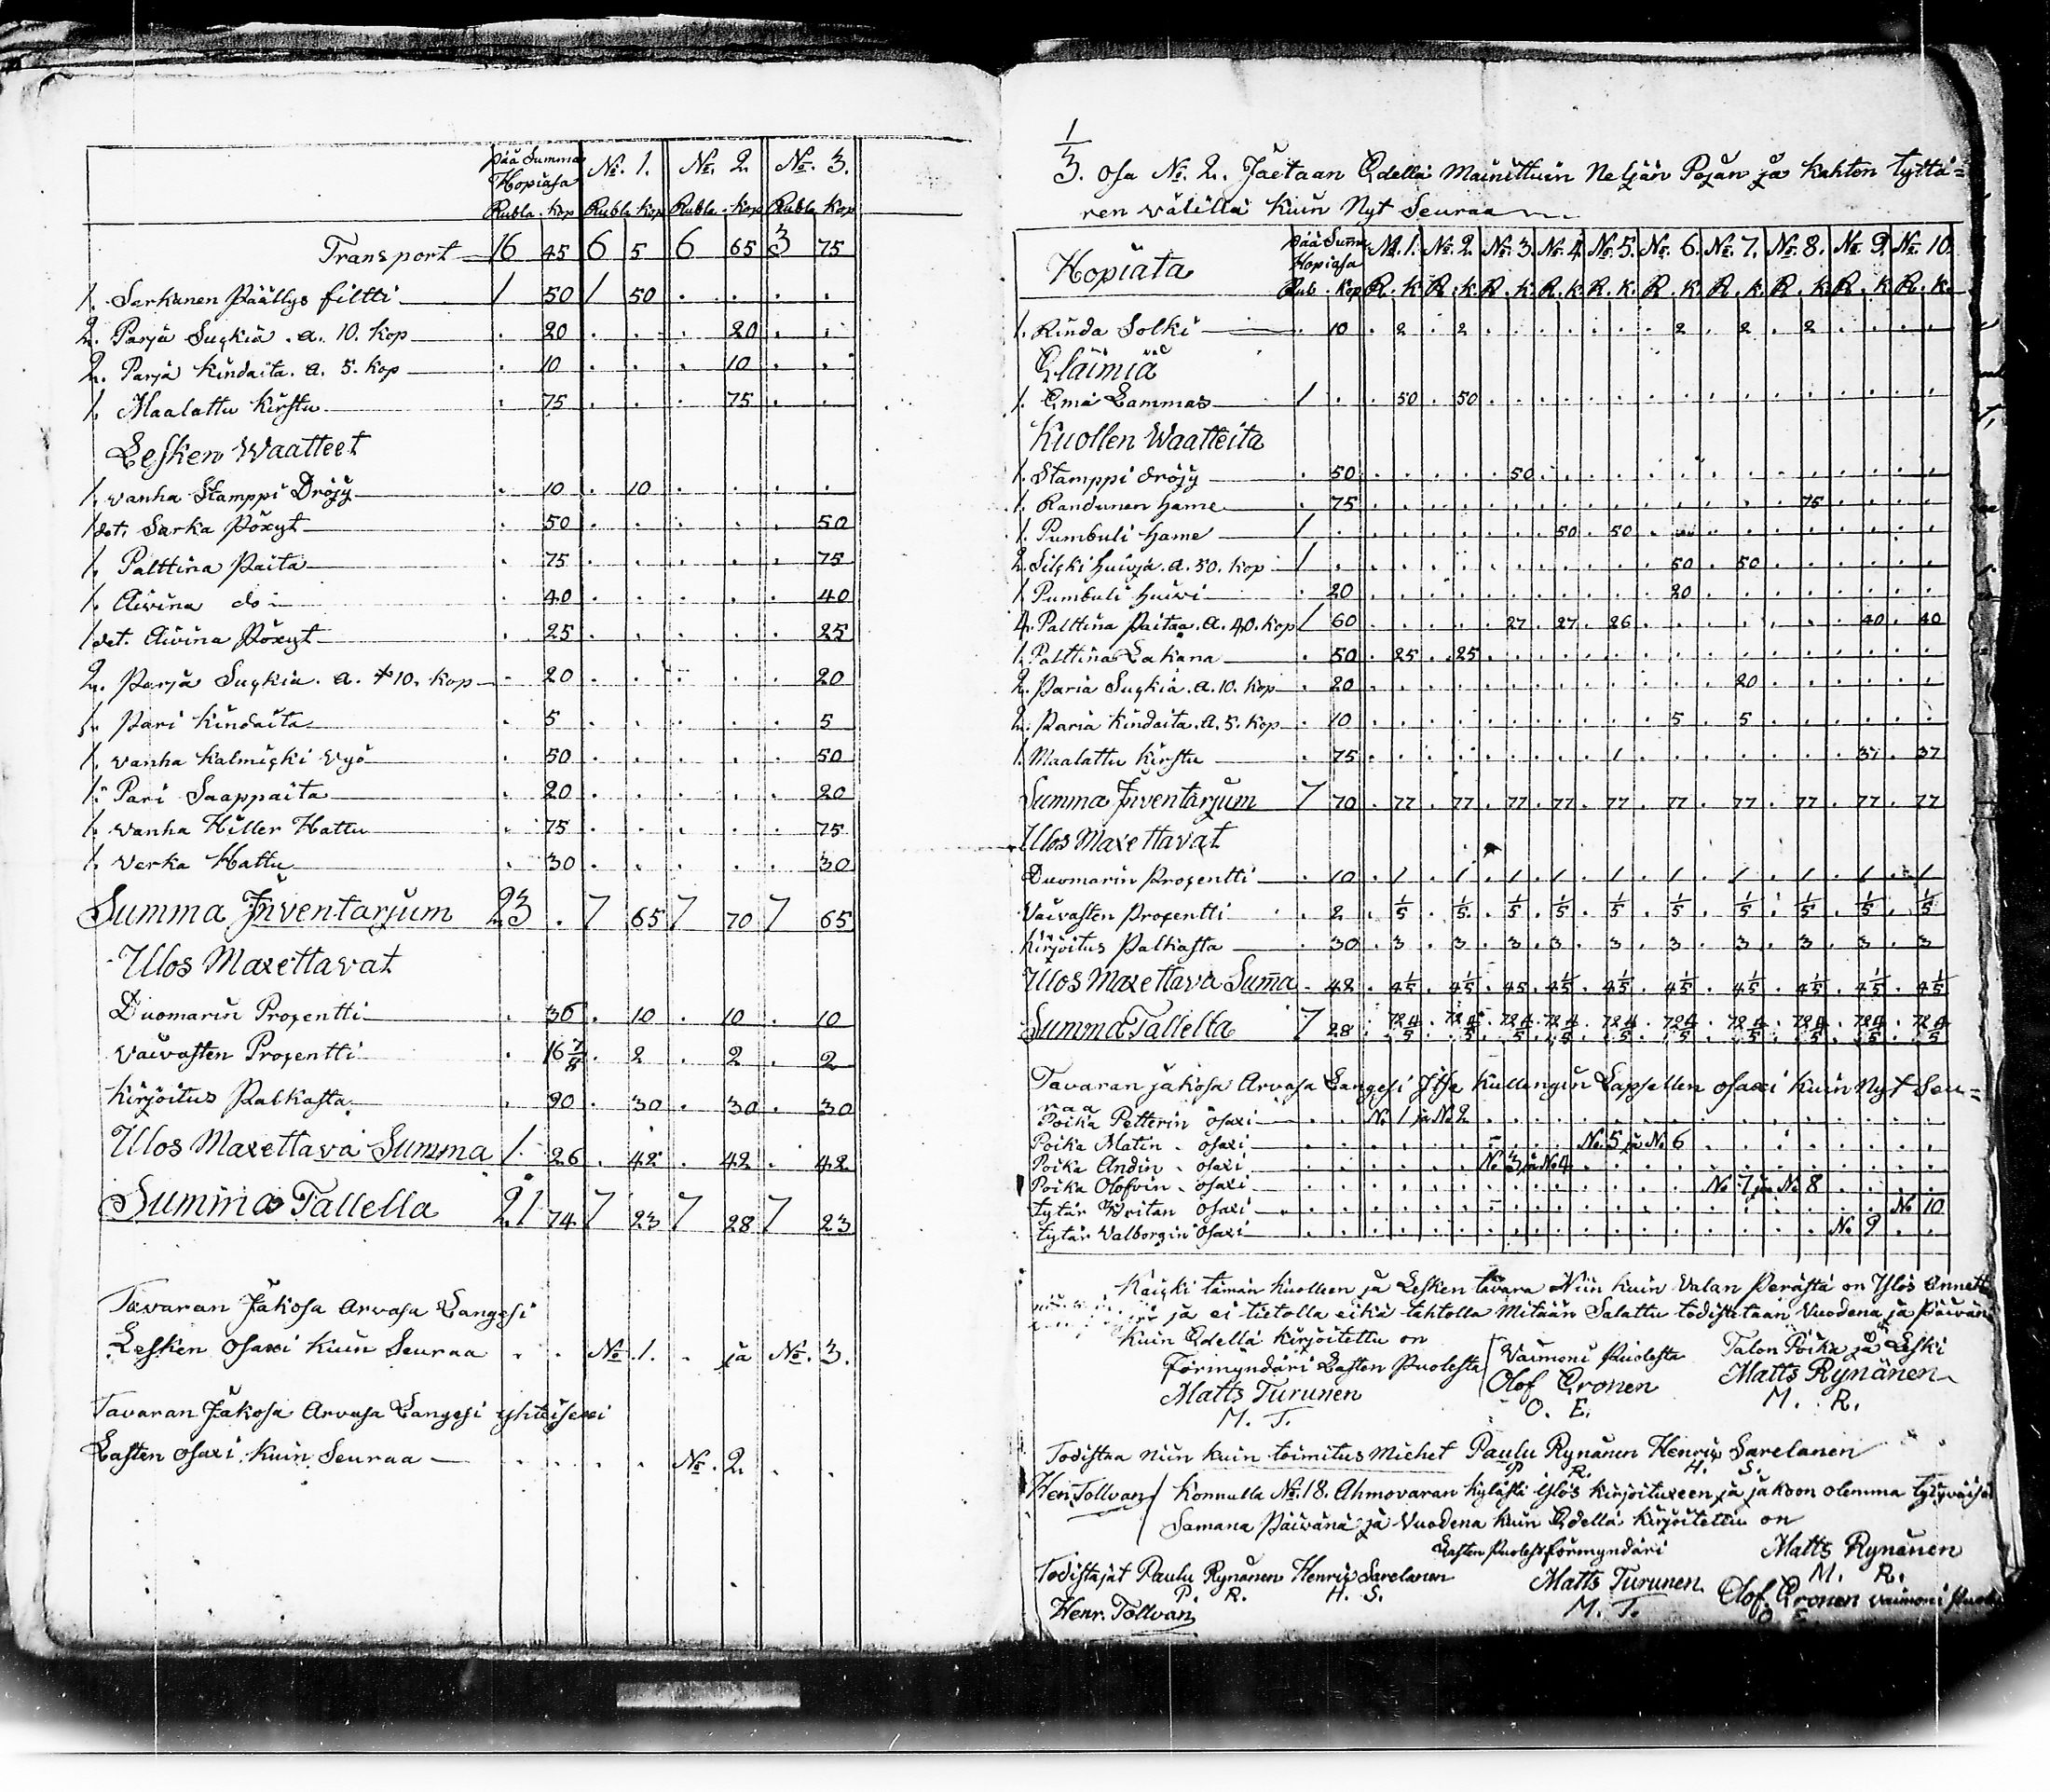 pää Summa Hopiasa No. 1. No. 2. No. 3.
Rubla. kop Rubla kop Rubla. kop Rubla kop
Transport 16 45 6 5 6 65 3 75
1. Sarkanen Päällys filtti 1 50 1 50 . . . .
2. Parjä Suckia. a. 10. kop . 20 . . . 20 . .
2. Parjä Kindaita. a. 5. kop . 10 . . . 10 . .
1. Maalattu Kirstu . 75 . . . 75 . .
Lesken Waatteet
1. vanha Stamppi Dröjy . 10 . 10 . . . .
1 det. Sarka Pöxyt . 50 . . . . . 50
1. Palttina Paita . 75 . . . . . 75
1. Aivina do . 40 . . . . . 40
1 det. Aivina Pöxyt . 25 . . . . . 25
2. Parjä Suckia. a. 10. kop . 20 . . . . . 20
1. Pari Kindaita . 5 . . . . . 5
1. vanha Kalmicki Vyö . 50 . . . . . 50
1. Pari Saappaita . 20 . . . . . 20
1. vanha Hiller Hattu . 75 . . . . . 75
1. Verka Hattu . 30 . . . . . 30
Summa Inventarjum 23 . 7 65 7 70 7 65
Ulos Maxettavat
Duomarin Procentti . 30 . 10 . 10 . 10
Vaivasten Procentti . . 2 . 2 . 2
Kirjoitus Palkasta . 90 . 30 . 30 . 30
Ulos Maxettava Summa 1. 26 . 42 . 42 . 42
Summa Tallella 21 74 7 23 7 28 7 23
Tavaran Jakosa Arvasa Langesi
Lesken Osaxi Kuin Seuraa . . No. 1. . ja No. 3.
Tavaran Jakosa Arvasa Langesi yhteisexi
Lasten Osaxi Kuin Seuraa . . . . No. 2. . .
1/3. Osa No. 2. Jaetaan Edellä Mainittuin Neljän Pojan ja kahten tyttä=
ren välillä Kuin Nyt Seuraa
Hopiata pää Summa Hopiasa No. 1. No. 2. No. 3. No. 4. No. 5. No. 6. No. 7. No. 8. No. 9. No. 10.
Rub. kop R. k. R. k. R. k. R. k. R. k. R. k. R. k. R. k. R. k. R. k.
1. Rinda Solki . 10 . 2 . 2 . . . . . . . 2 . 2 . 2 . . . .
Eläimiä
1. Emä Lammas 1 . . 50 . 50 . . . . . . . . . . . . . . . .
Kuollen Waatteita
1. Stamppi dröjy . 50 . . . . . 50 . . . . . . . . . . . . . .
1. Randunen hame . 75 . . . . . . . . . . . . . . . 75 . . . .
1. Pumbuli hame 1 . . . . . . . . 50 . 50 . . . . . . . . . .
2. Silcki huivja. a. 50. kop 1 . . . . . . . . . . . . 50 . 50 . . . . . .
1. Pumbuli huivi . 20 . . . . . . . . . . . 20 . . . . . . . .
4. Palttina Paitaa. a. 40. kop 1 60 . . . . . 27 . 27 . 26 . . . . . . . 40 . 40
1. Palttina Lakana . 50 . 25 . 25 . . . . . . . . . . . . . . . .
2. Paria Suckia. a. 10. kop . 20 . . . . . . . . . . . . . 20 . . . . . .
2. Paria Kindaita. a. 5. kop . 10 . . . . . . . . . . . 5 . 5 . . . . . .
1. Maalattu Kirstu . 75 . . . . . . . . . 1 . . . . . . . 37 . 37
Summa Inventarjum 7 70 . 77 . 77 . 77 . 77 . 77 . 77 . 77 . 77 . 77 . 77
Ulos Maxettavat
Duomarin Procentti . 10 . 1 . 1 . 1 . 1 . 1 . 1 . 1 . 1 . 1 . 1
Vaivasten Procentti . 2 . 1/5 . 1/5 . 1/5 . 1/5 . 1/5 . 1/5 . 1/5 . 1/5 . 1/5 . 1/5
Kirjoitus Palkasta . 30 . 3 . 3 . 3 . 3 . 3 . 3 . 3 . 3 . 3 . 3
Ulos Maxettava Sum̃a . 42 . 4 1/5 . 4 1/5 . 45 . 4 1/5 . 4 1/5 . 4 1/5 . 4 1/5 . 4 1/5 . 4 1/5 . 4 1/5
Summa Tallella 7 28 . 72 4/5 . 72 4/5 . 72 4/5 . 72 4/5 . 72 4/5 . 72 4/5 . 72 4/5 . 72 4/5 . 72 4/5 . 72 4/5
Tavaran jakosa Arvasa Langesi Itse Kullengin Lapsellen osaxi Kuin Nyt Seu=
raa
Poika Petterin osaxi No. 1 ja No 2
Poika Matin osaxi No. 5 ja No 6
Poika Andin osaxi No 3 ja No 4
Poika Olofvin osaxi No 7 ja No 8
tytär osaxi No 10
tytär Valborgin Osaxi No. 9
Kaicki tämän Kuolleen ja Lesken tavara Niin kuin Valan Perästä on Ylös Annettu
ja ei tietolla eikä tahtolla Mitään Salattu todistetaan Vuodena ja Päivänä
Kuin Edellä Kirjoitettu on
Förmyndäri Lasten Puolesta Vaimoni Puolesta Talon Poika ja Leski
Matts Turunen Olof Eronen Matts Rynänen
M. T. O. E. M. R.
Todistaa niin kuin toimitus Miehet Paulu Rynänen Henrix Sarelanen
P. R. H. S.
Hen. Tollvan Konnulla No. 18. Ahmovaran Kylästi Ylös Kirjoituxeen ja jakoon olemma tytyväiset
Samana Päivänä ja Vuodena kuin Edellä Kirjoitettu on
Lasten Puolest förmyndäri Matts Rynänen
Todistajat Paulu Rynänen Henrix Sarelanen Matts Turunen M. R.
P. R. H. S. M. T. Olof Eronen vaimoni
Henr. Tollvan O E.